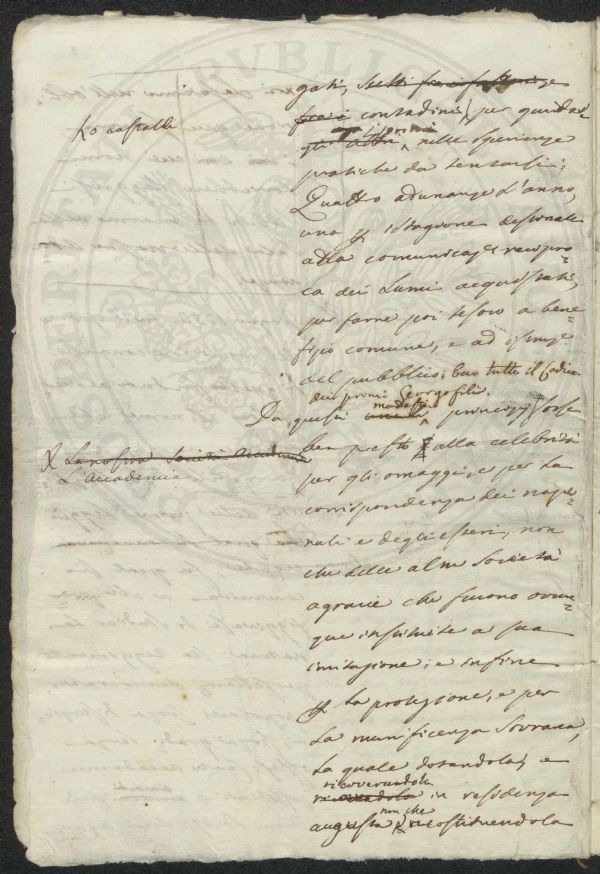 gati, scelti fra i fattori, e
fra i contadini, per guidar
gli altri nelle sperienze
pratiche da tentarsi;
Quattro adunanze l'anno,
una p stagione destinate
alla comunicaze recipro
ca dei lumi acquistati,
per farne poi tesoro a bene=
fizio comune, e ad istruze
del pubblico; Ecco tutto il Codice
dei primi Georgofili.
Da questi modesti principj sorse
ben presto X alla celebrità
X La nostra Società Accademia
L'Accademia
per gli omaggi, e per la
corrispondenza dei nazio=
nali e degli esteri, non
che delle altre Società
agrarie che furono ovun=
que instituite a sua
imitazione; e infine
p la protezione, e per
la munificenza Sovrana,
la quale dotandola, e
ricoverandola
in residenza
non che
augusta, ricostituendola